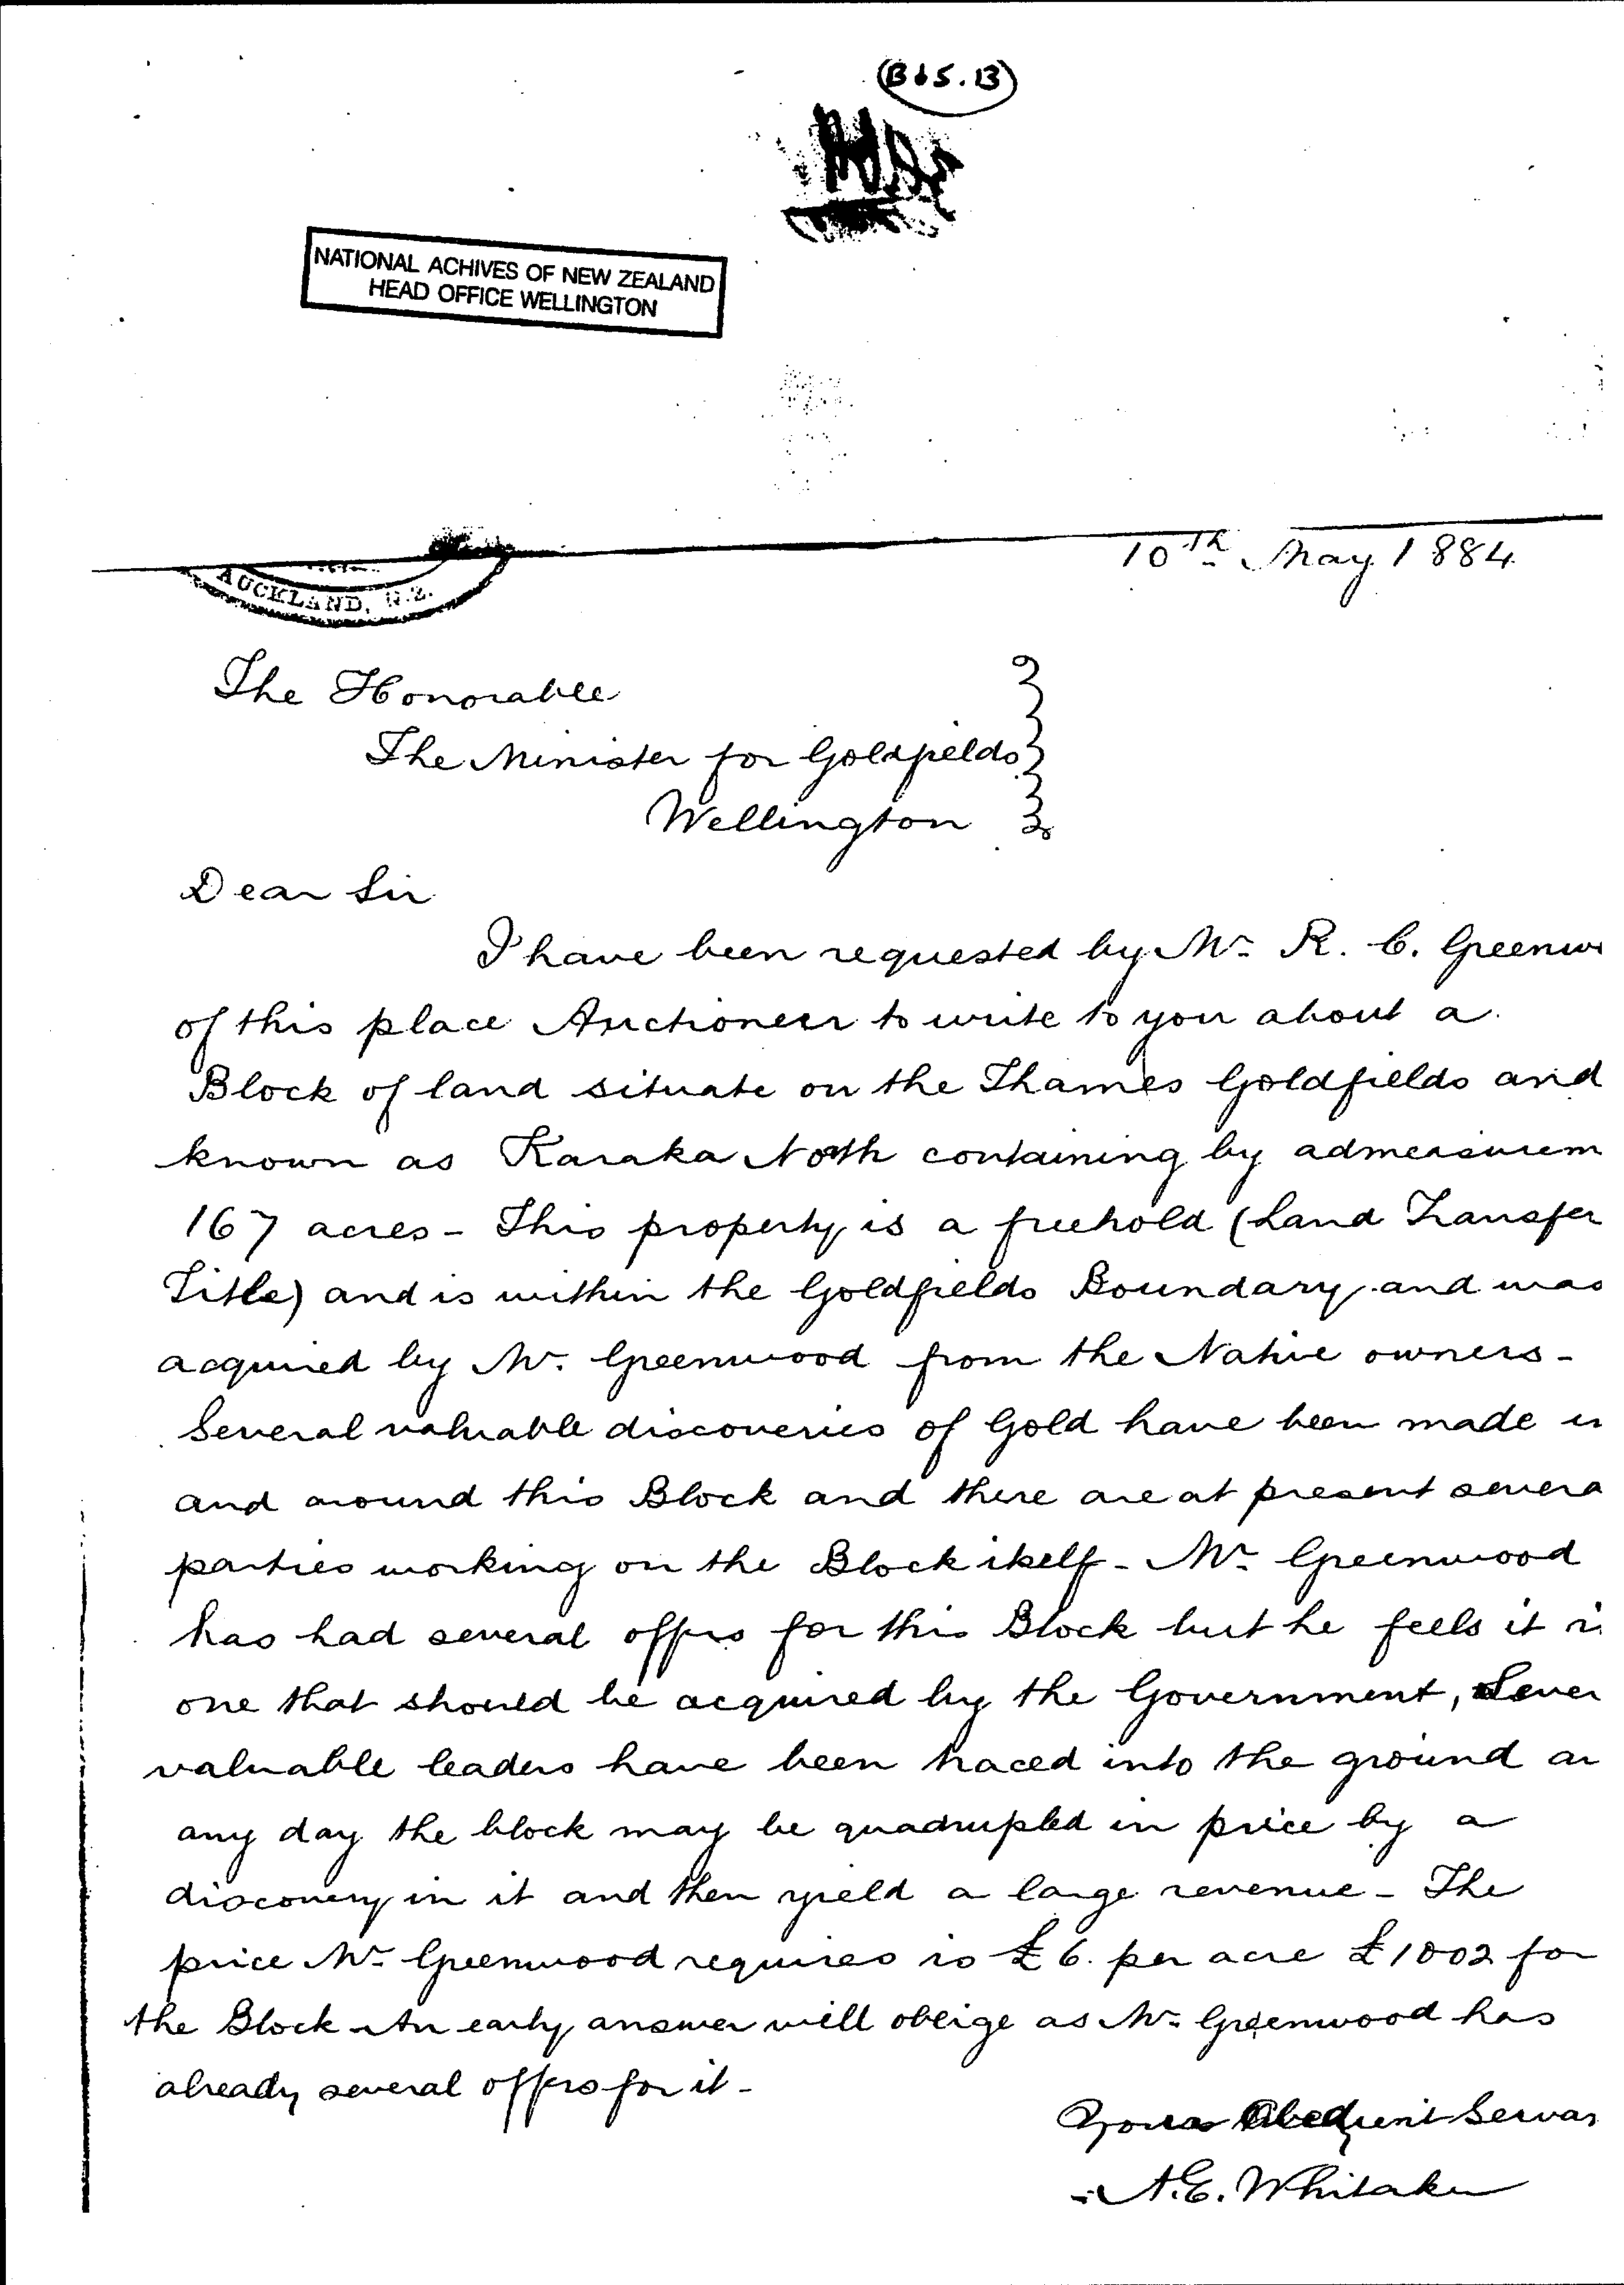 (B65.13)
NATIONAL ACHIVES OF NEW ZEALAND
HEAD OFFICE WELLINGTON
10th May 1884
AUCKLAND, N.Z.
The Honorable
The Minister for Goldfields
Wellington
Dear Sir
I have been requested by Mr. R. C. Greenw
of this place Auctioneer to write to you about a
Block of land situate on the Thames Goldfields and
known as Karaka North containing by admeasurem
167 acres - This property is a freehold (Land Transfer
Title) and is within the Goldfields Boundary and was
acquired by Mr. Greenwood from the Native owners -
Several valuable discoveries of Gold have been made in
and around this Block and there are at present severa
parties working on the Block itself - Mr. Greenwood
has had several offers for this Block but he feels it is
one that should be acquired by the Government, Sever
valuable leaders have been traced into the ground an
any day the block may be quadrupled in price by a
discovery in it and then yield a large revenue - The
price Mr. Greenwood requires is £6. per acre £1002 for
the Block - An early answer will oblige as Mr. Greenwood has
already several offers for it -
Yours Obedient Servan
A. E. Whitaker